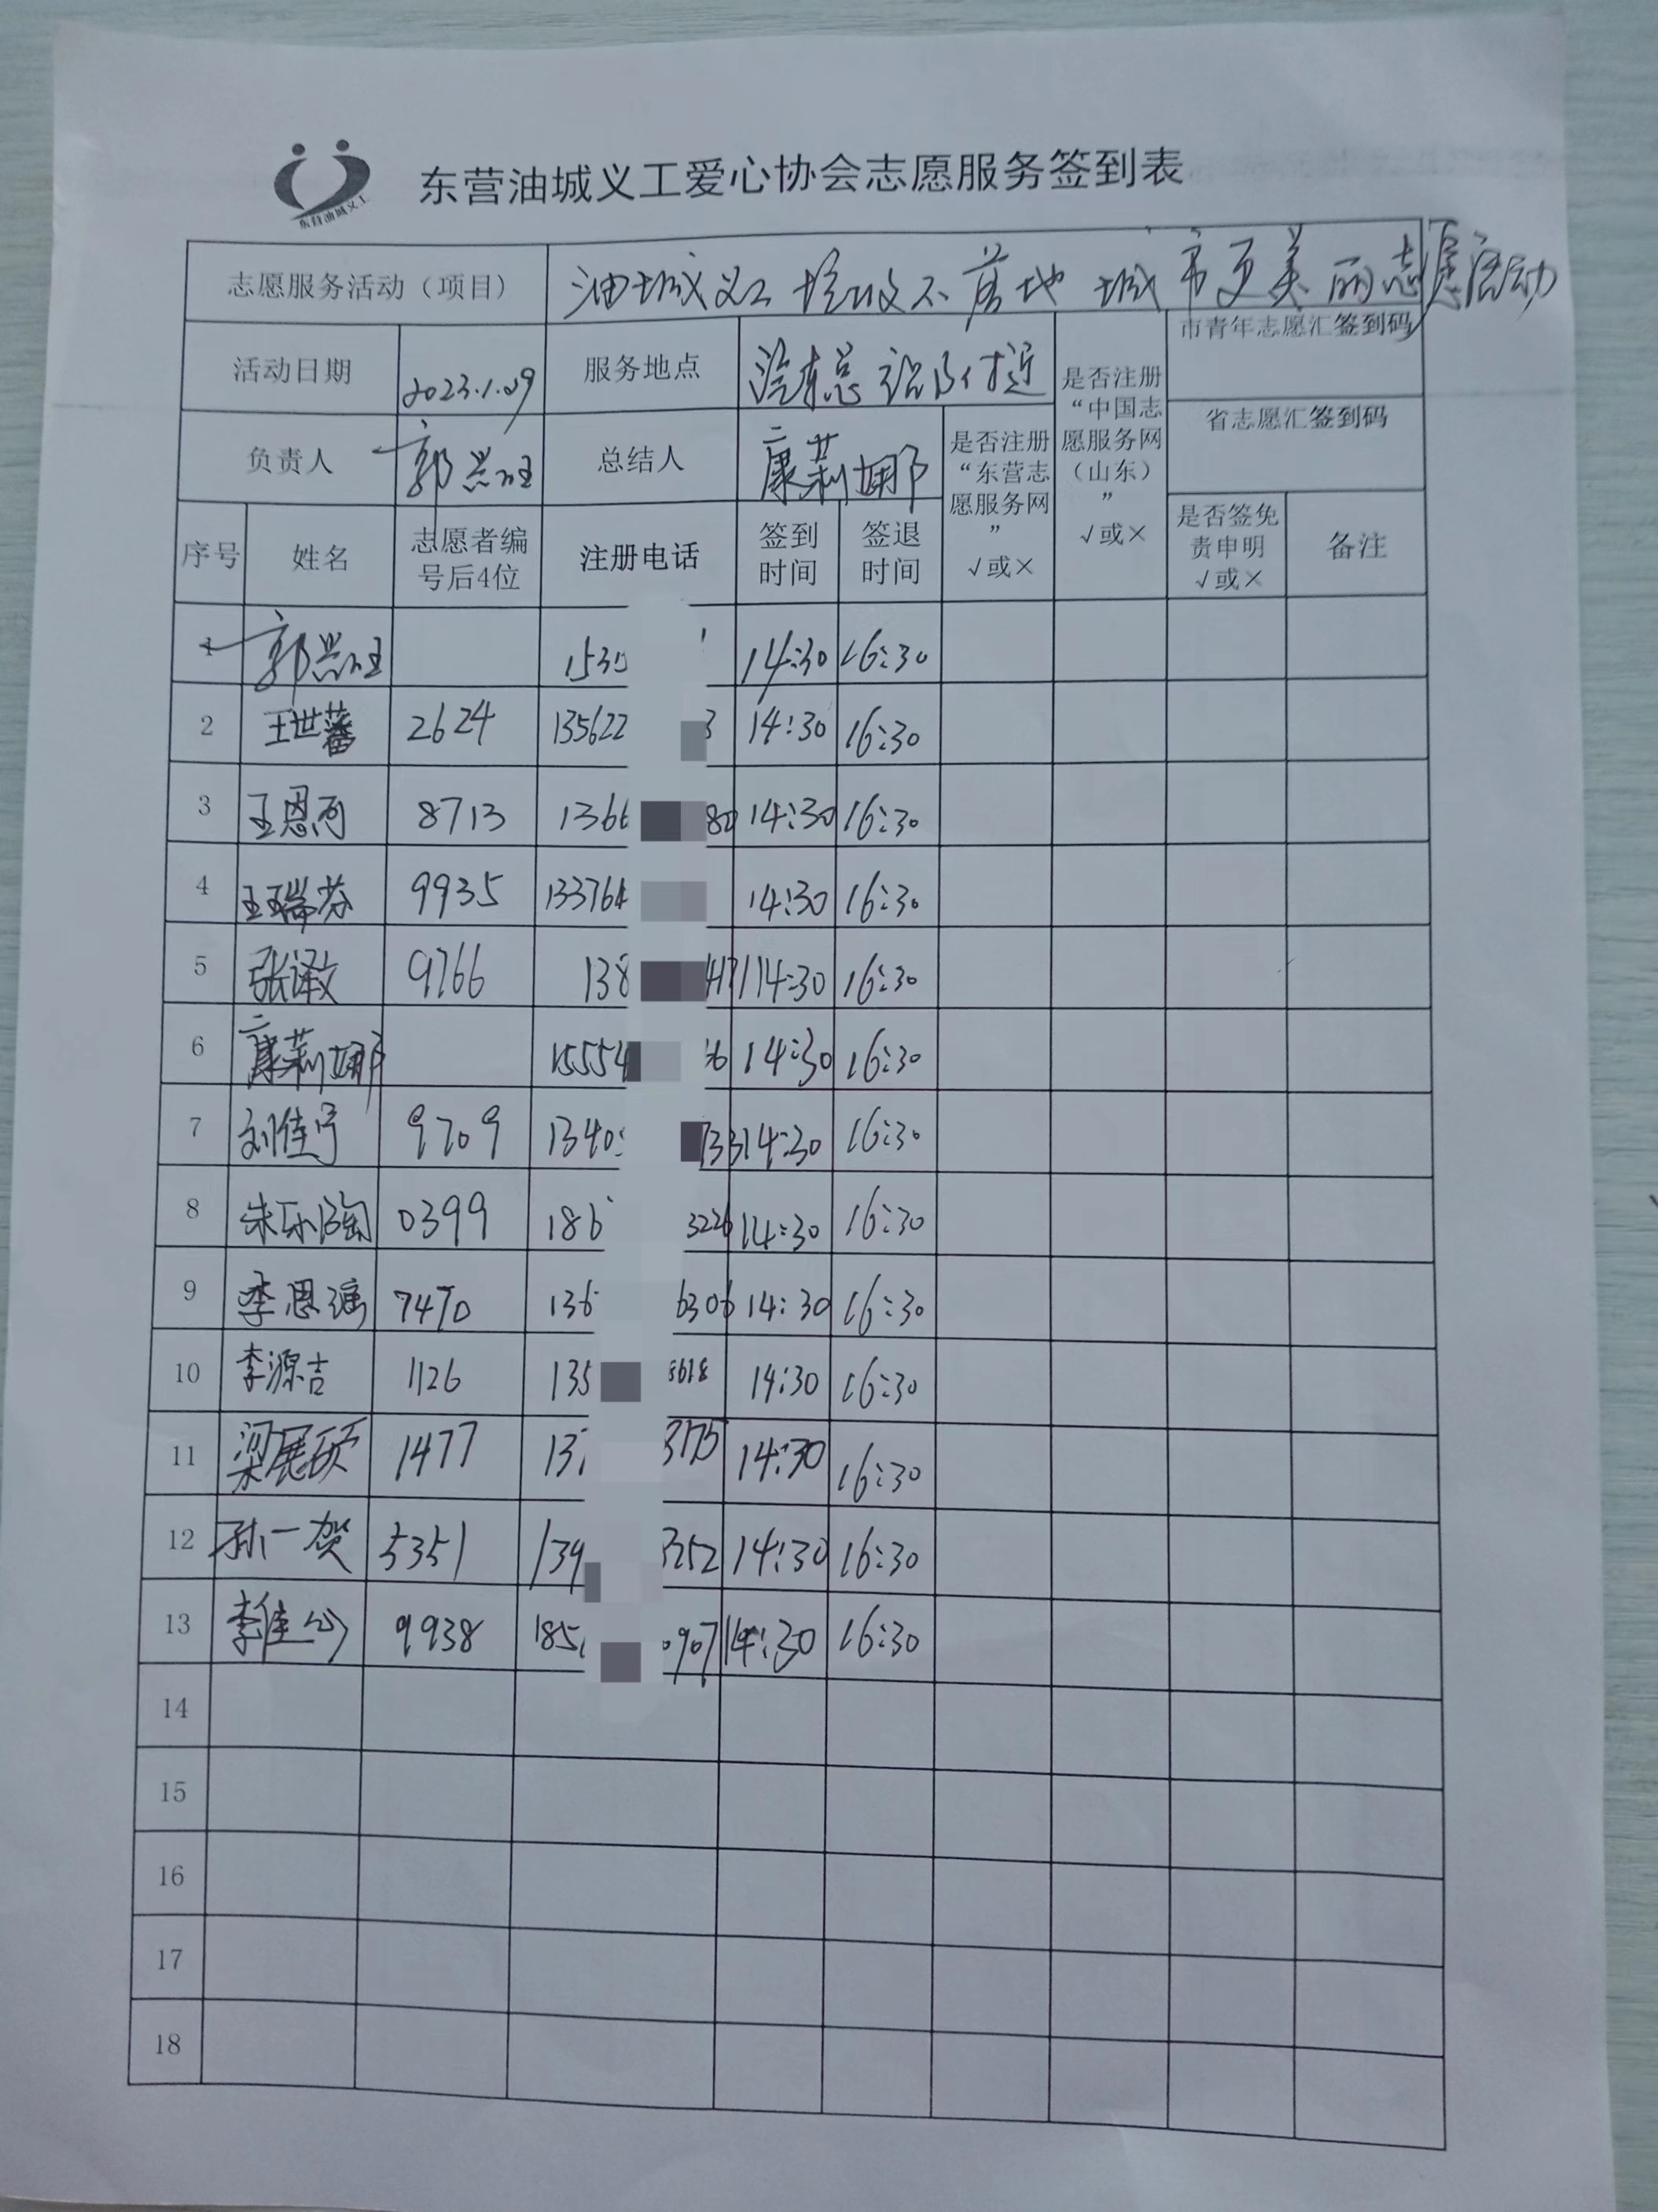 东营油城义工
东营油城义工爱心协会志愿服务签到表
志愿服务活动（项目） 油城义工垃圾不落地 城市更美丽志愿活动
活动日期 2023.1.29 服务地点 汽车总站附近 是否注册“中国志愿服务网（山东）” √或× 市青年志愿汇签到码
省志愿汇签到码
负责人 郭 总结人 康莉娜 是否注册“东营志愿服务网” √或×
序号 姓名 志愿者编号后4位 注册电话 签到时间 签退时间 是否签免责申明 √或× 备注
1 郭 1530 14:30 16:30
2 王世蕃 2624 135622 3 14:30 16:30
3 王恩 8713 1366 80 14:30 16:30
4 王瑞芬 9935 133764 14:30 16:30
5 张译文 9766 138 417 14:30 16:30
6 康莉娜 15554 6 14:30 16:30
7 刘佳宁 9709 1340 733 14:30 16:30
8 朱乐陶 0399 186 3226 14:30 16:30
9 李思瑶 7470 136 6306 14:30 16:30
10 李源吉 1126 135 8618 14:30 16:30
11 梁展硕 1477 13 3175 14:30 16:30
12 孙一贺 5351 139 3252 14:30 16:30
13 李佳 9938 185 0907 14:30 16:30
14
15
16
17
18